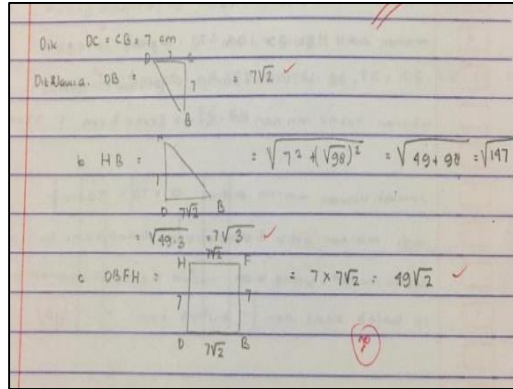 Dik DC = CB = 7 cm
Ditanya. DB = D 7 C 7 B = 7√2
b HB = H 7 D 7√2 B = √7² + (√98)² = √49 + 98 = √147
= √49.3 = 7√3
c DBFH = H 7√2 F 7 7 D 7√2 B = 7 x 7√2 = 49√2